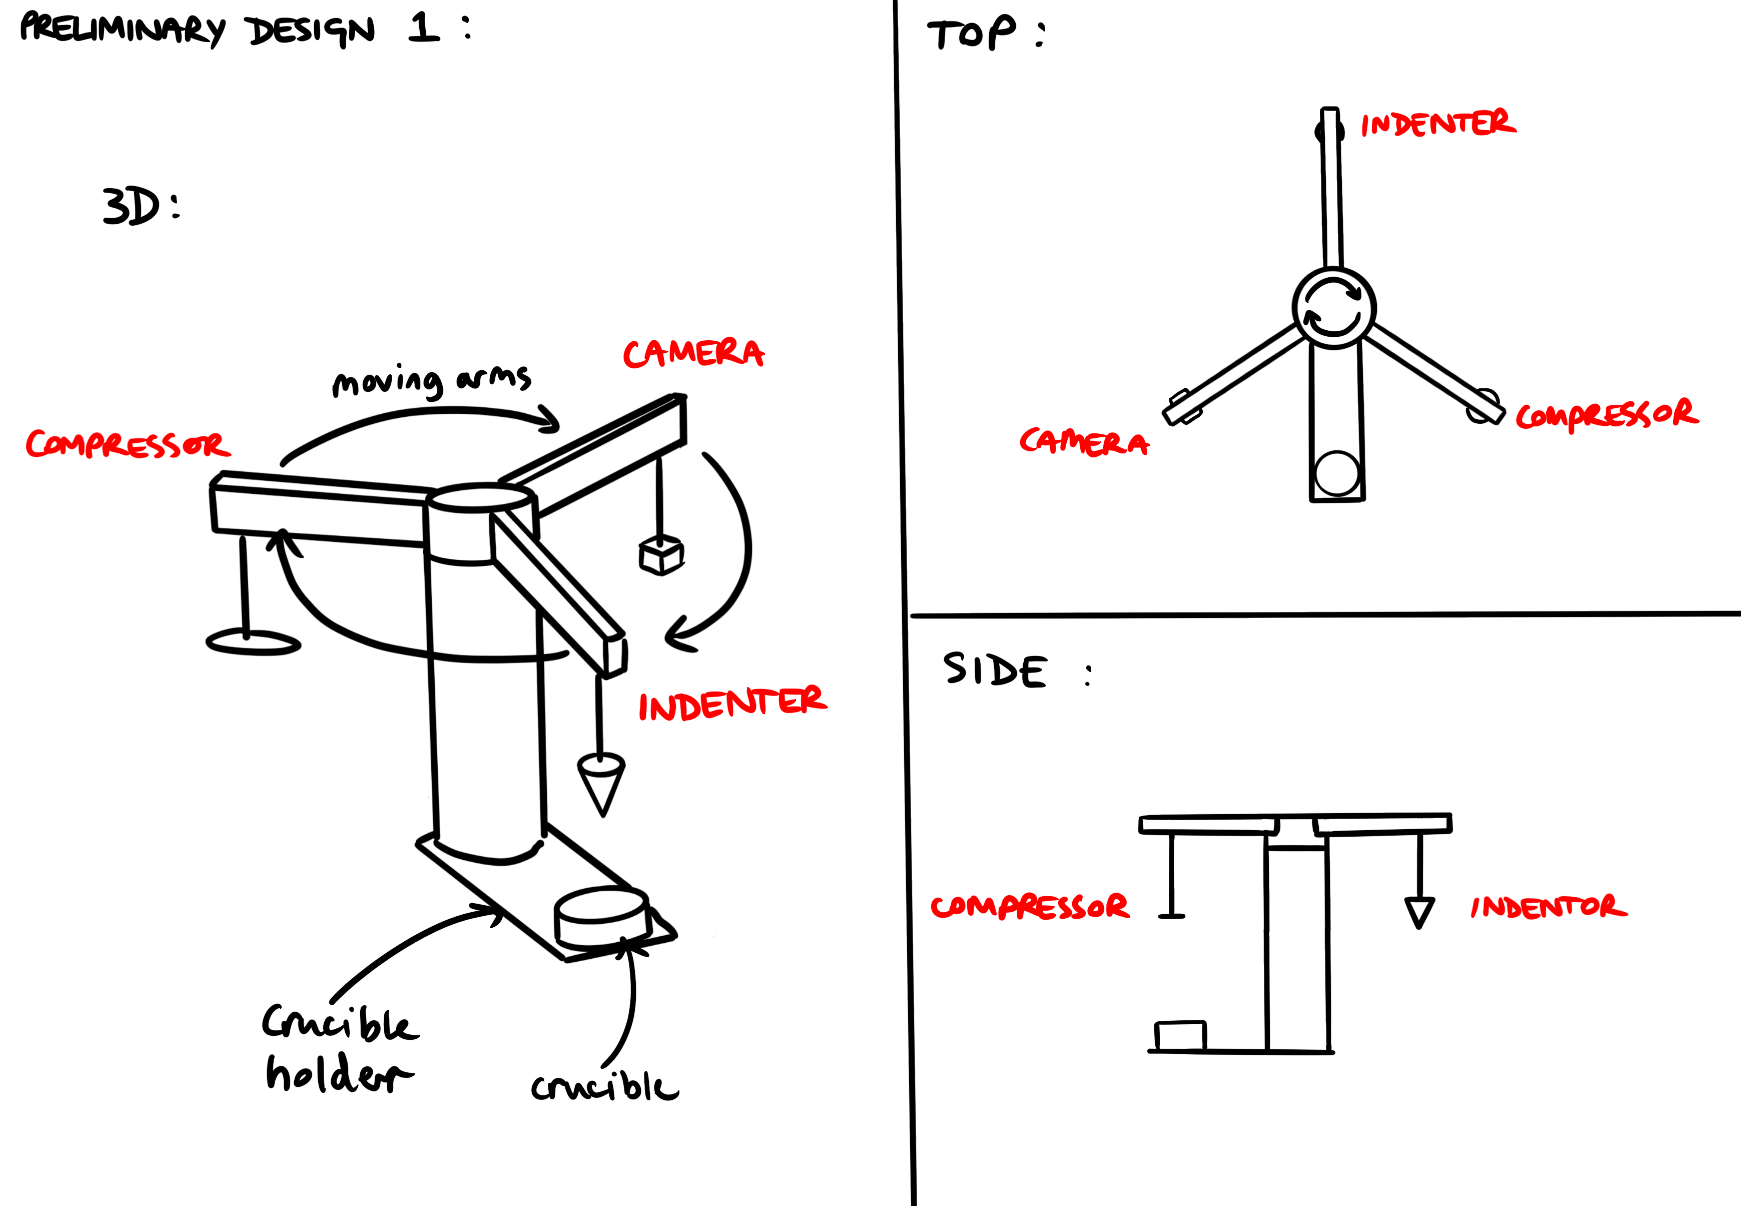 PRELIMINARY DESIGN 1 :
3D:
moving arms
CAMERA
COMPRESSOR
INDENTER
Crucible
holder
crucible
TOP :
INDENTER
CAMERA
COMPRESSOR
SIDE :
COMPRESSOR
INDENTOR